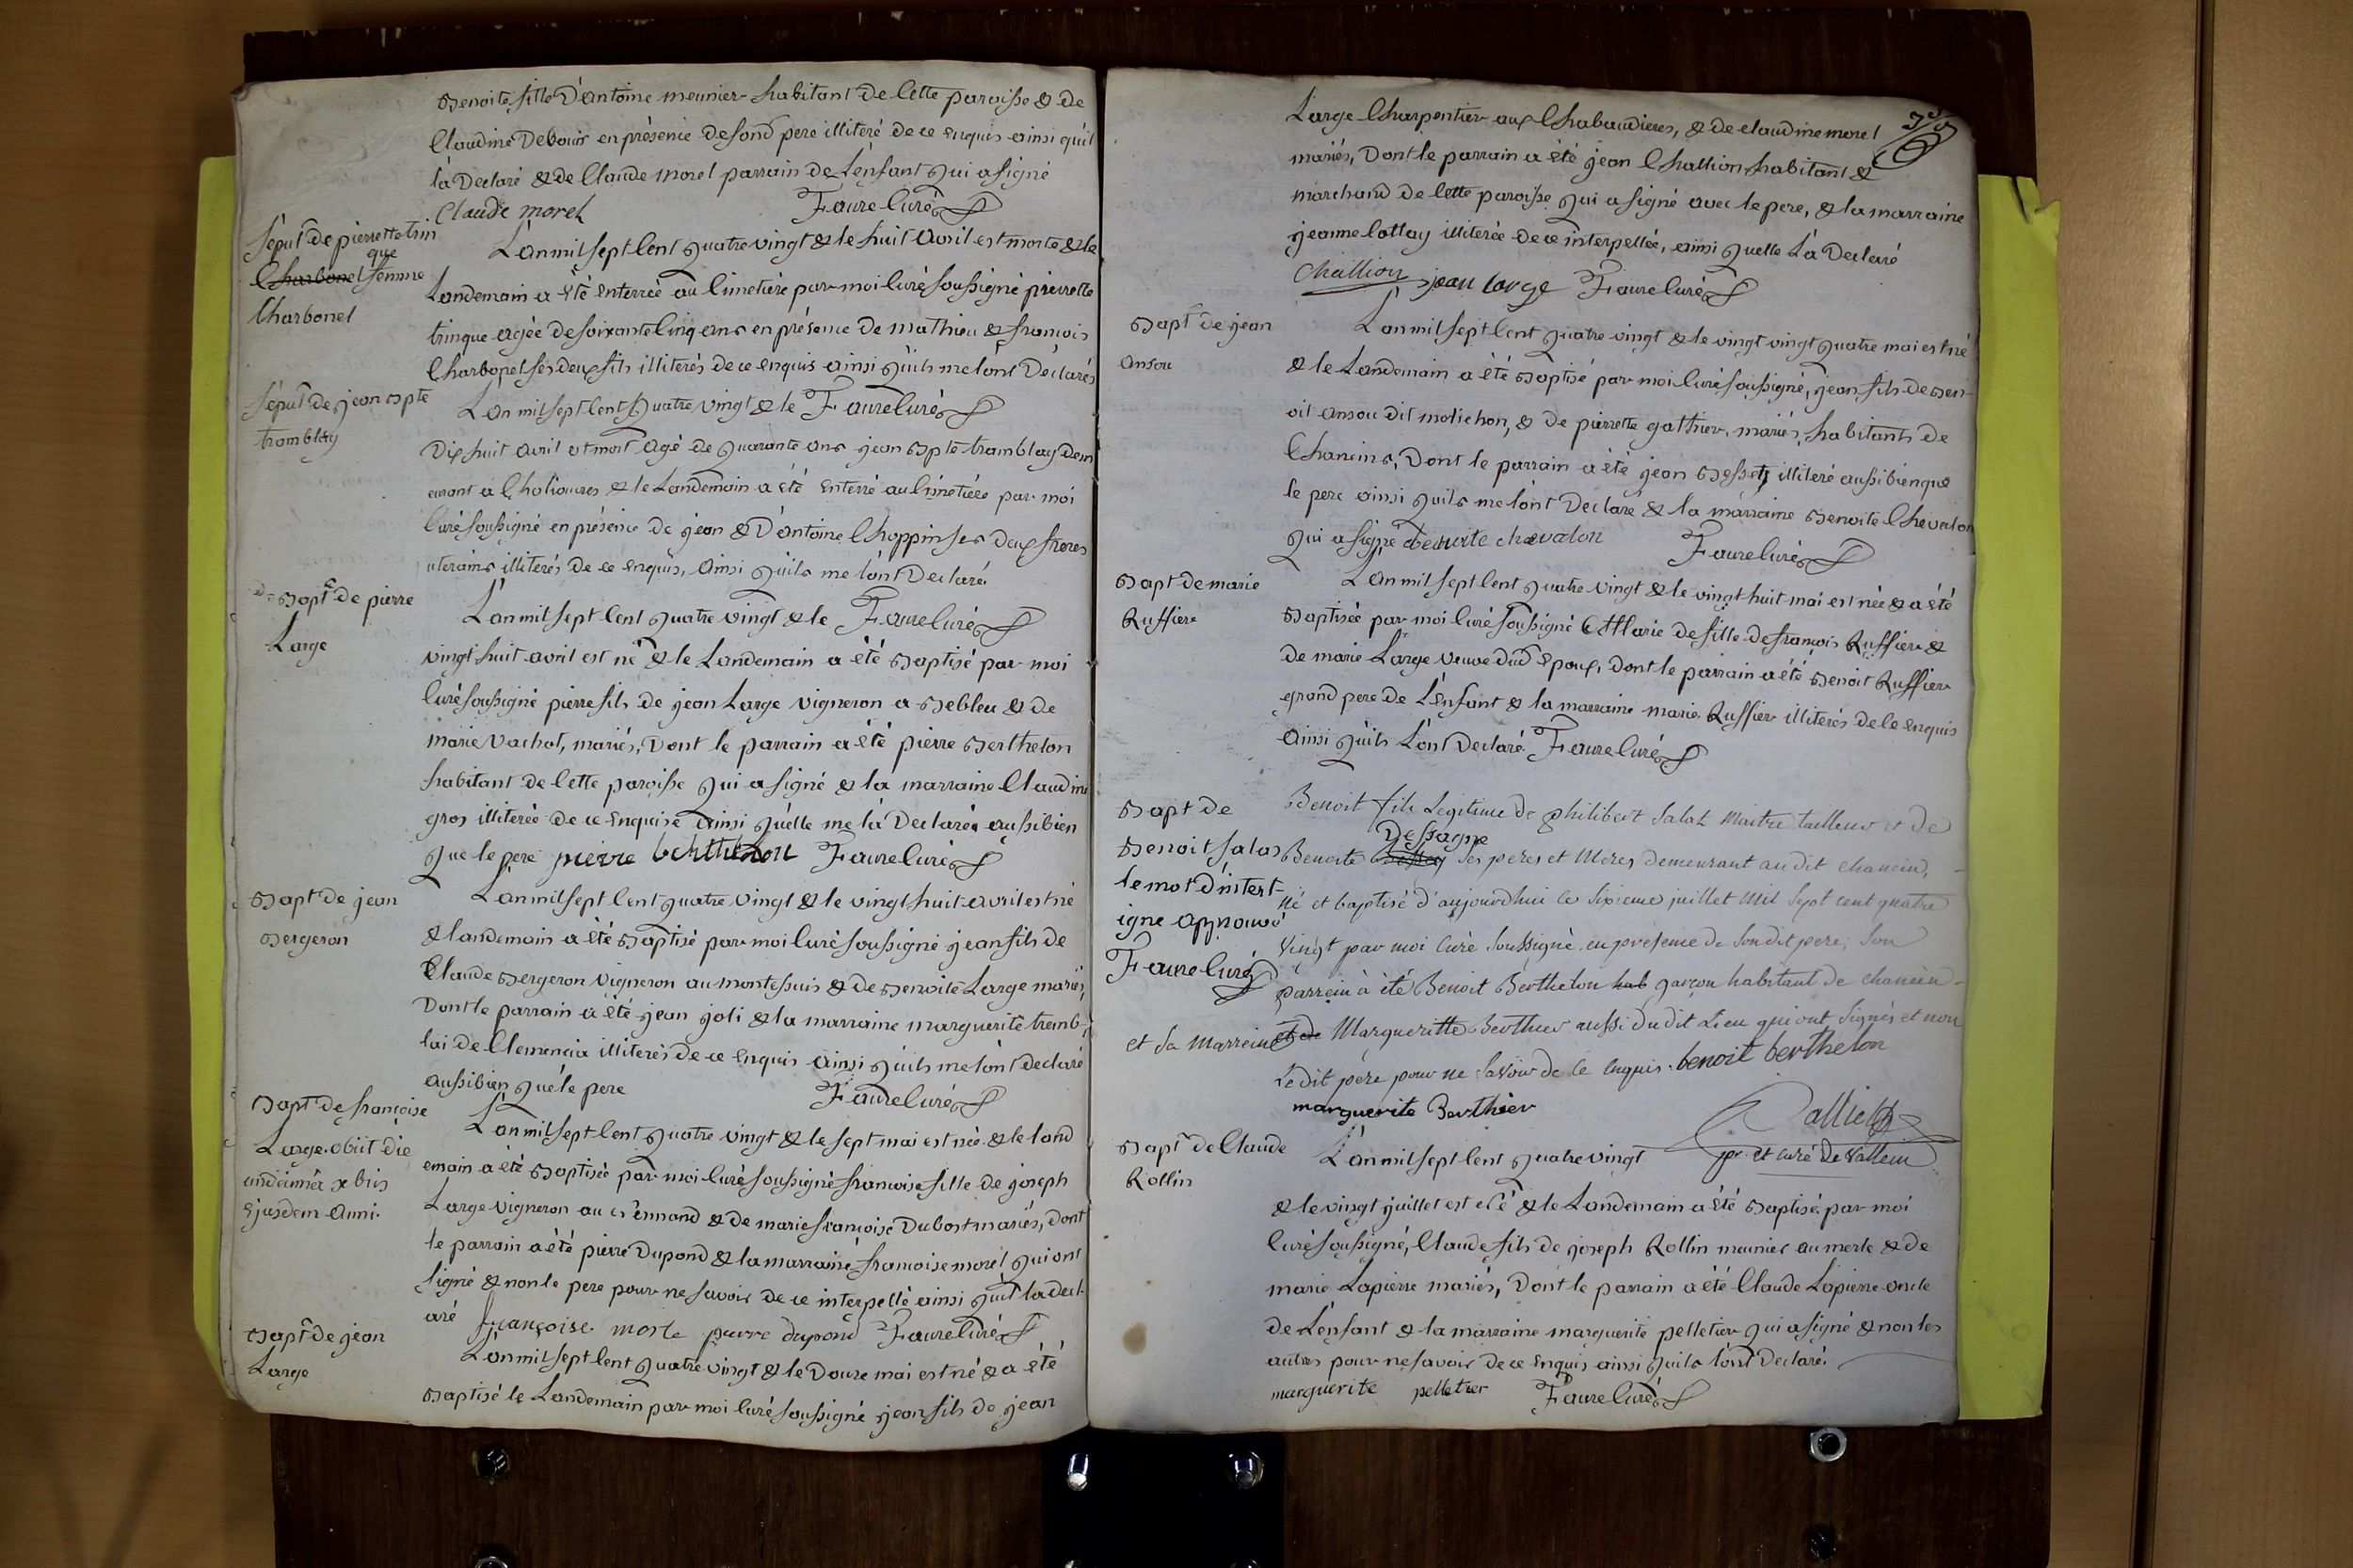 Benoite fille D'antoine meunier habitant de Cette paroisse & de
Claudine Debouis en présence desond pere illiteré de ce enquis ainsi qu'il
la Declaré & de Claude morel parrain de L'enfant qui a signé
Claude morel Faure Curé
Sépult de pierrette trin
que
Charbonel femme
Charbonel
L'an mil sept Cent quatre vingt & le huit avril est morte & le
Landemain a été enterrée au Cimetière par moi Curé soussigné pierrette
trinque agée de soixante Cinq ans en présence de mathieu & françois
Charbonel ses deux fils illiterés de ce enquis ainsi qu'ils me lont Déclarés
Sépult de jean bpte
tramblay
L'an mil sept Cent quatre vingt & le Faure Curé
Dix huit avril est mort agé de quarante ans jean bpte tramblay dem
eurant a Cholioures & le Landemain a été enterré au Cimetière par moi
Curé soussigné en présence de jean & D'antoine Choppin ses deux freres
uterains illiterés de ce enquis, ainsi quils me lont Declaré.
Bapt de pierre
Large
L'an mil sept Cent quatre vingt & le Faure Curé
vingt huit avril est né & le Landemain a été baptisé par moi
Curé soussigné pierre fils de jean Large vigneron a Bebleu & de
marie vachot, mariés, Dont le parrain a été pierre Berthelon
habitant de Cette paroisse qui a signé & la marraine Claudine
gros illiterée de ce enquise ainsi quelle me la Declaréa aussi bien
que le pere pierre berthelon Faure Curé
Bapt de jean
Bergeron
L'an mil sept Cent quatre vingt & le vingt huit avril est né
& landemain a été baptisé par moi Curé soussigné jean fils de
Claude Bergeron vigneron au montessuis & de Benoite Large mariés,
Dont le parrain a été jean joli & la marraine marguerite tremb-
lai de Clemencia illiterés de ce enquis ainsi quils me lont declaré
aussi bien que le pere Faure Curé
Bapt de françoise
Large. obiit die
undecimâ xbris
ejusdem anni.
L'an mil sept Cent quatre vingt & le sept mai est née & le land
emain a été baptisée par moi Curé soussigné françoise fille de joseph
Large vigneron au & de marie françoise Dubost mariés, dont
le parrain a été pierre Dupond & la marraine françoise morel qui ont
signé & non le pere pour ne savoir de ce interpellé ainsi quil la decl-
aré françoise morle pierre dupond Faure Curé
Bapt de jean
Large
L'an mil sept Cent quatre vingt & le Douze mai est né & a été
baptisé le Landemain par moi Curé soussigné jean fils de jean
Large Charpentier aux Chabaudieres, & de claudine morel
mariés, Dont le parrain a été jean Chillion habitant &
marchand de Cette paroisse qui a signé avec le pere, & la marraine
jeanne Collay illiterée de ce interpellée, ainsi quelle La Declaré
Chillion jean large Faure Curé
Bapt de jean
ansou
L'an mil sept Cent quatre vingt & le vingt vingt quatre mai est né
& le Landemain a été baptisé par moi Curé soussigné, jean fils de Ben-
oit ansou dit molichon, & de pierrette gathier, mariés, habitants de
Chaneins, Dont le parrain a été jean illiteré aussi bien que
le pere ainsi quils me lont Declaré & la marraine Benoite Chevalon
qui a signé benoite chevalon Faure Curé
Bapt de marie
Ruffier
L'an mil sept Cent quatre vingt & le vingt huit mai est née & a été
baptisée par moi Curé soussigné Marie de fille de françois Ruffier &
de marie Large veuve dud epoux, Dont le parrain a été Benoit Ruffier
grand pere de L'enfant & la marraine marie Ruffier illiterés de Ce enquis
ainsi quils lont Declaré Faure Curé
Bapt de
Benoit salat
le mot d'intert-
igne approuvé
Faure Curé
Benoit fils Legitime de philibert Salat Maitre tailleur et de
Dessagne
Benoite ses peres et Meres demeurant au dit chanein,
né et baptisé d'aujourdhui le sixieme juillet Mil Sept cent quatre
vingt par moi Curé Soussigné en presence de son dit pere; Son
parrein à été Benoit Berthelon hab garçon habitant de chanein
et sa Marreine et de Margueritte Berthier aussi du dit Lieu qui ont Signés et non
Le dit père pour ne Savoir de ce enquis. benoit berthelon
marguerite Berthier
pr et curé de Vallein
Bapt de Claude
Rollin
L'an mil sept Cent quatre vingt
& le vingt juillet est né & le Landemain a été baptisé par moi
Curé soussigné, Claude fils de joseph Rollin meunier au merle & de
marie Lapierre mariés, Dont le parrain a été Claude Lapierre oncle
de L'enfant & la marraine marguerite pelletier qui a signé & non les
autres pour ne savoir de ce enquis ainsi quils lont Declaré.
marguerite pelletier Faure Curé